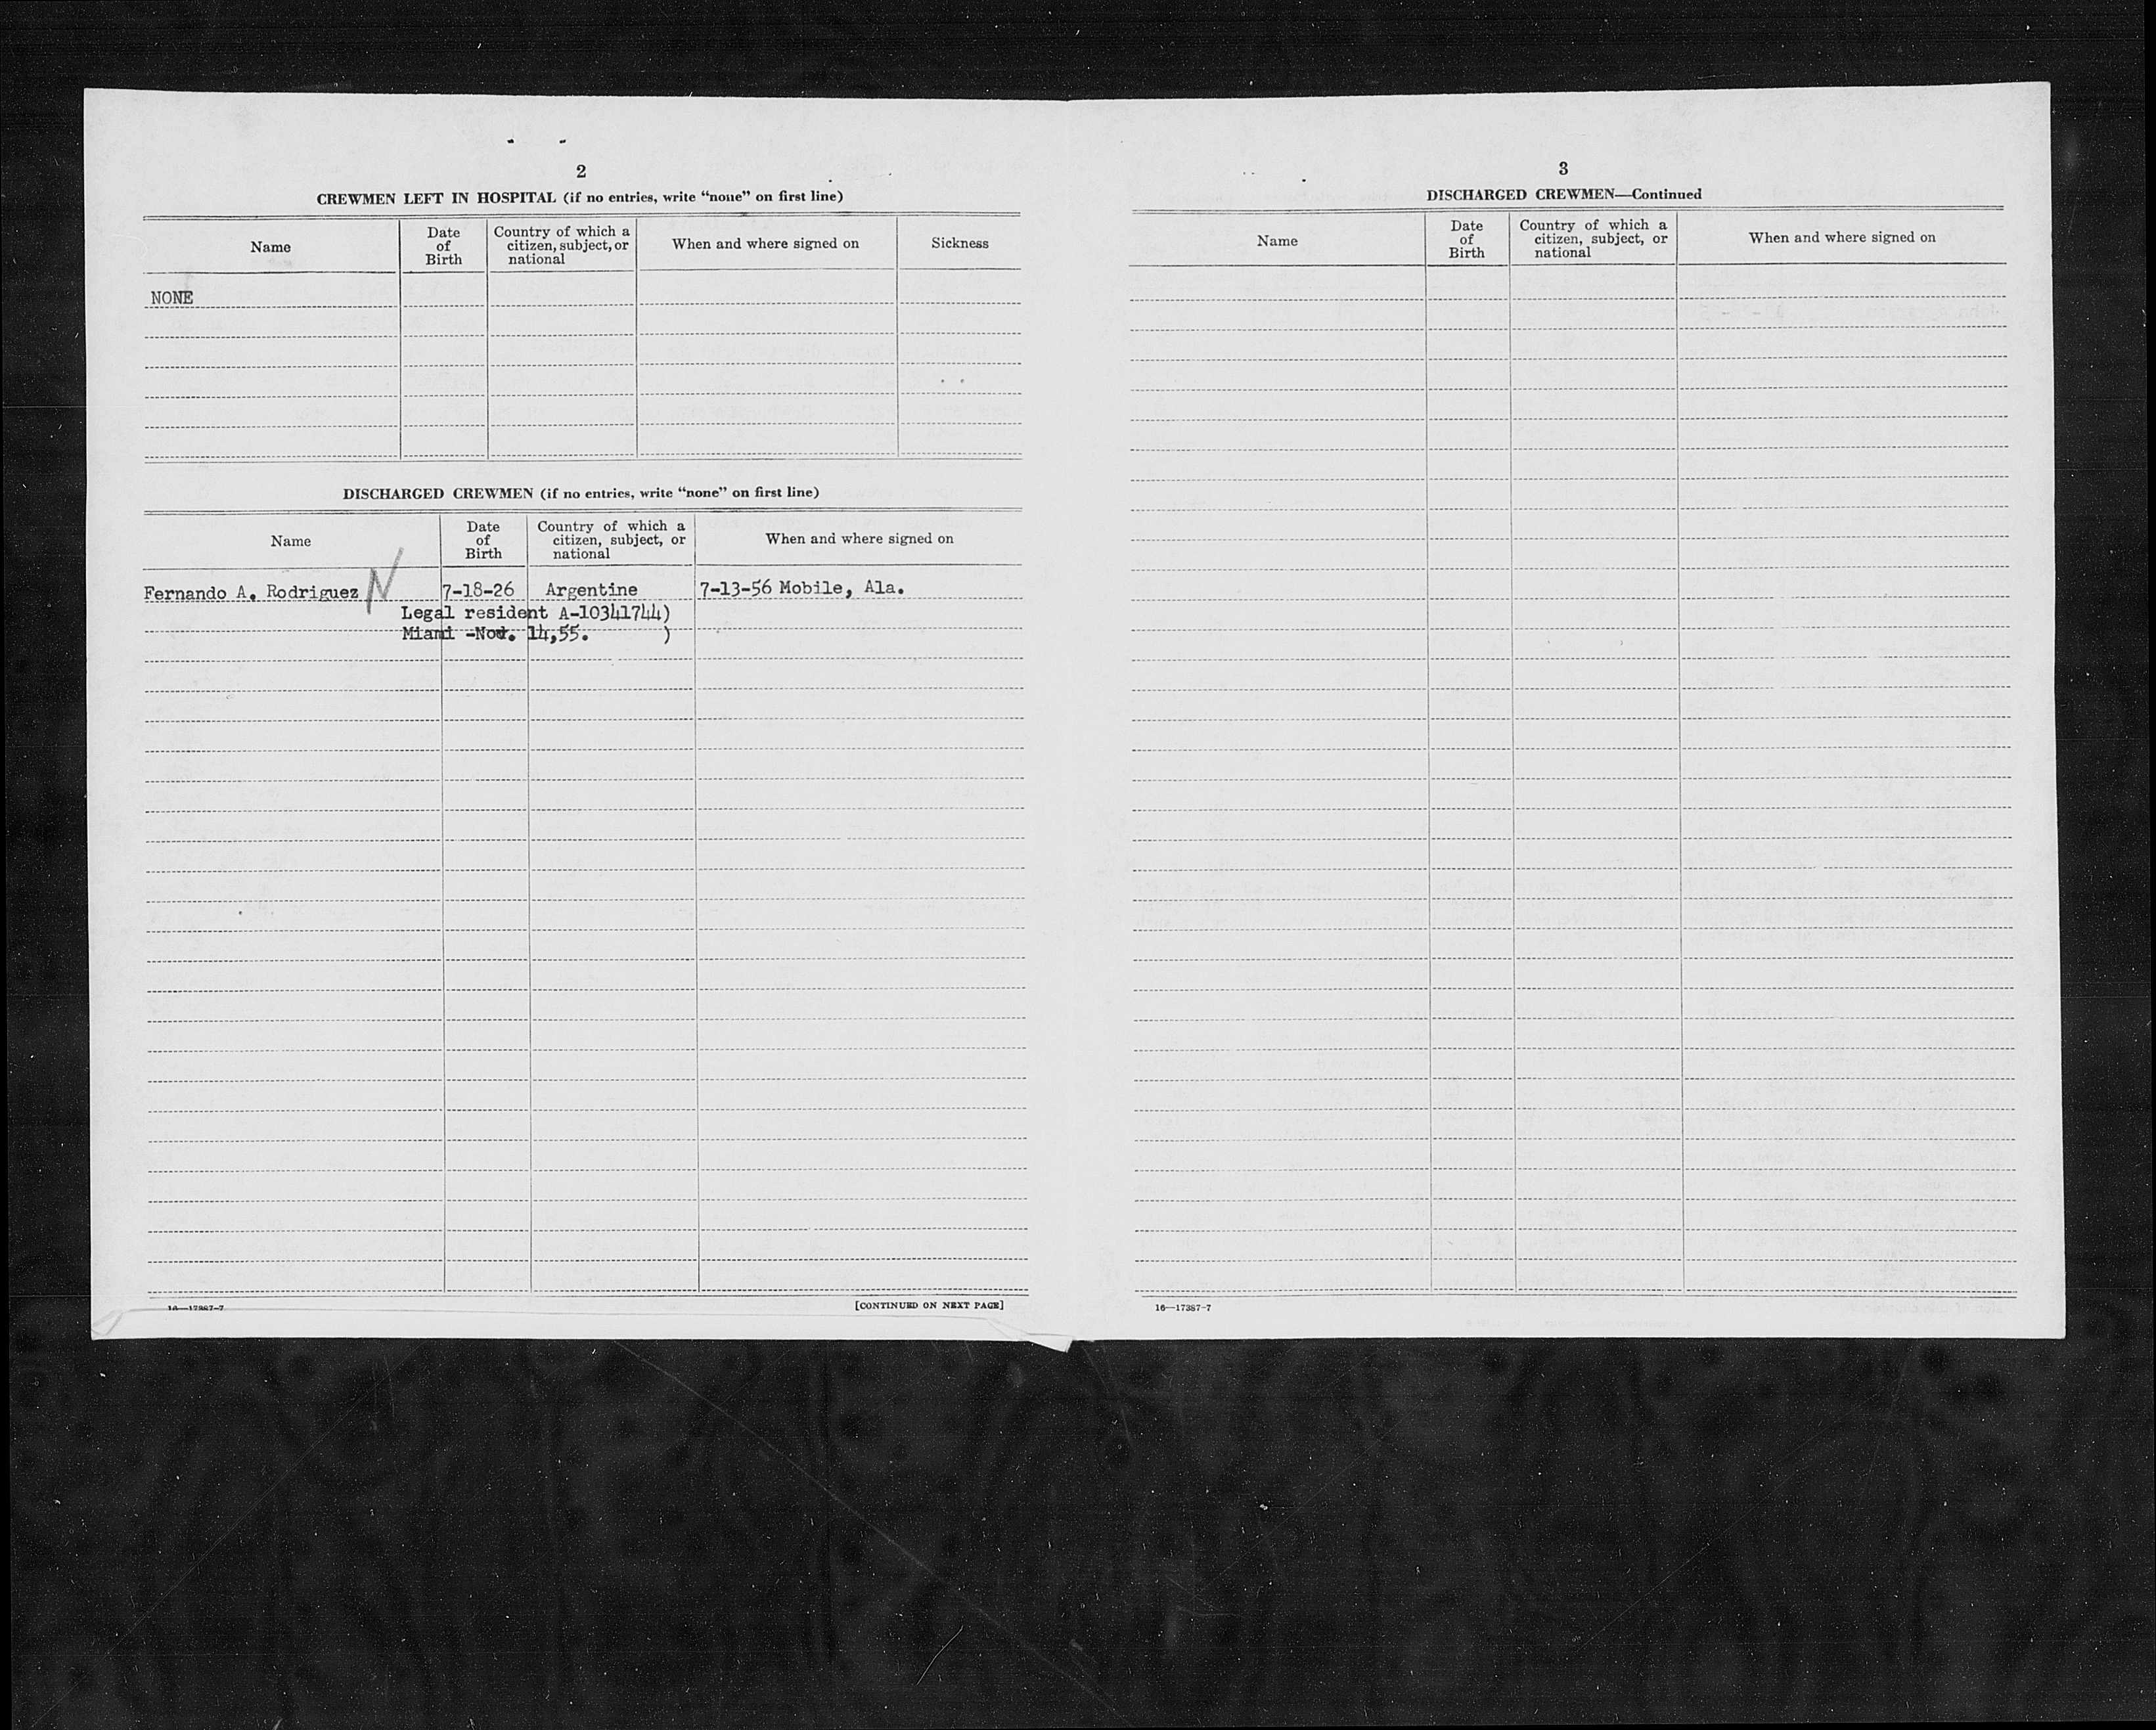 2
CREWMEN LEFT IN HOSPITAL (if no entries, write “none” on first line)
Name
Date of Birth
Country of which a citizen, subject, or national
When and where signed on
Sickness
NONE
DISCHARGED CREWMEN (if no entries, write “none” on first line)
Name
Date of Birth
Country of which a citizen, subject, or national
When and where signed on
Fernando A. Rodriguez 7-18-26 Argentine 7-13-56 Mobile, Ala.
Legal resident A-10341744)
Miami -Nov. 14,55. )
16—17387-7
[CONTINUED ON NEXT PAGE]
3
DISCHARGED CREWMEN—Continued
Name
Date of Birth
Country of which a citizen, subject, or national
When and where signed on
16—17387-7